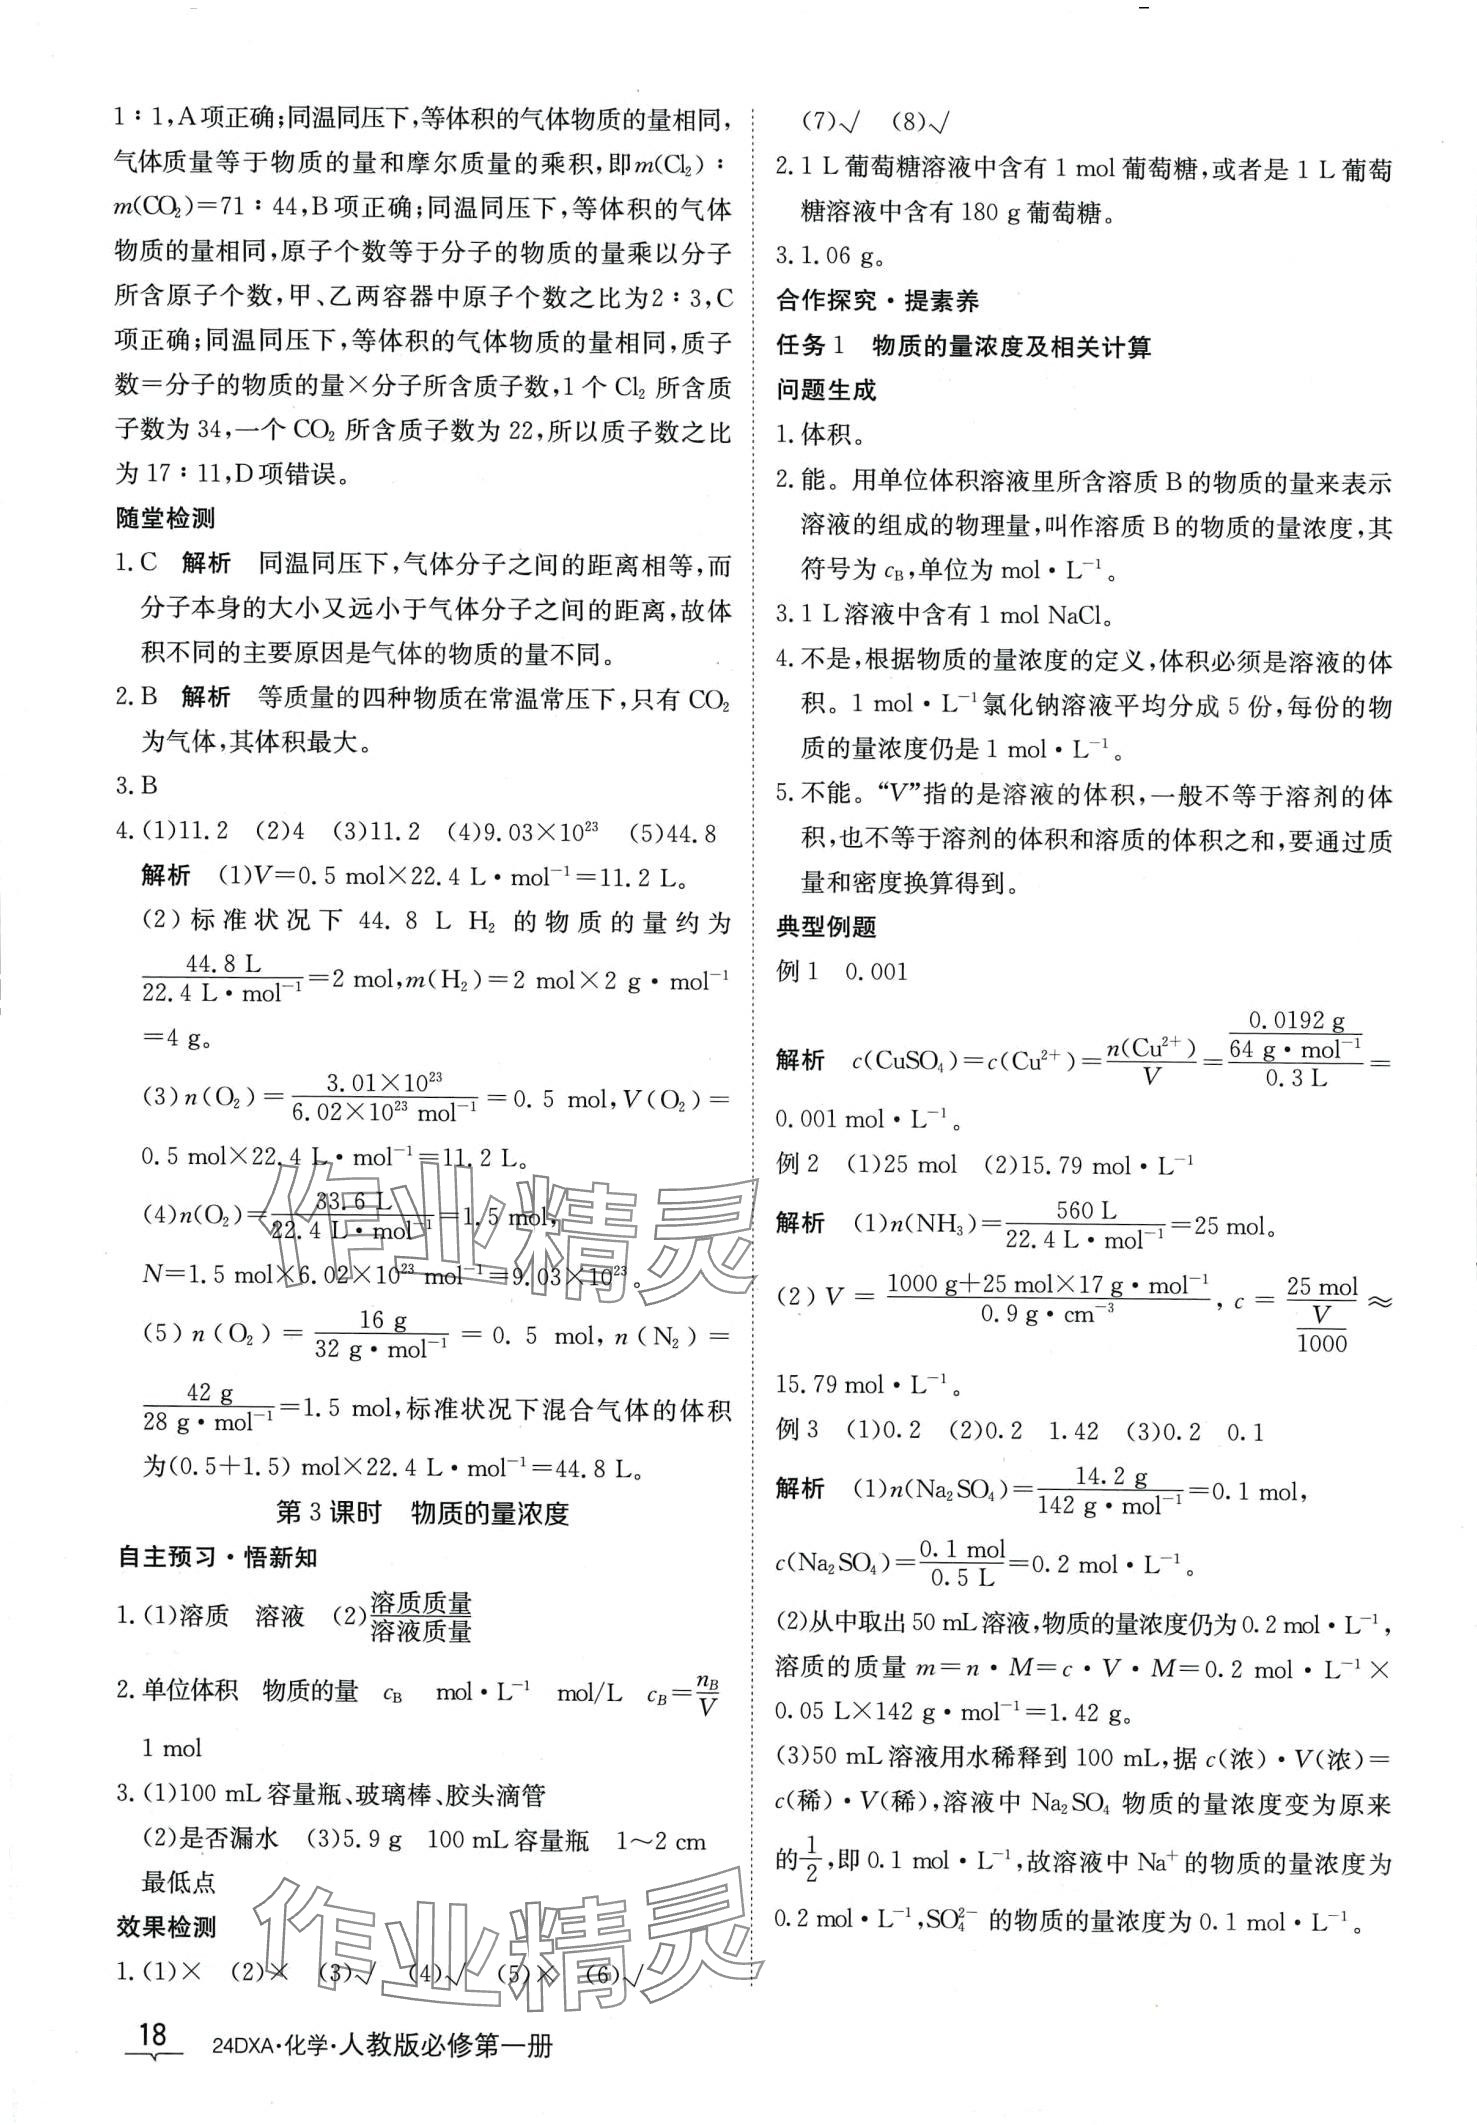 1∶1,A项正确;同温同压下,等体积的气体物质的量相同,
气体质量等于物质的量和摩尔质量的乘积,即m(Cl₂)∶
m(CO₂)=71∶44,B项正确;同温同压下,等体积的气体
物质的量相同,原子个数等于分子的物质的量乘以分子
所含原子个数,甲、乙两容器中原子个数之比为2∶3,C
项正确;同温同压下,等体积的气体物质的量相同,质子
数=分子的物质的量×分子所含质子数,1个Cl₂所含质
子数为34,一个CO₂所含质子数为22,所以质子数之比
为17∶11,D项错误。
随堂检测
1.C 解析 同温同压下,气体分子之间的距离相等,而
分子本身的大小又远小于气体分子之间的距离,故体
积不同的主要原因是气体的物质的量不同。
2.B 解析 等质量的四种物质在常温常压下,只有CO₂
为气体,其体积最大。
3.B
4.(1)11.2 (2)4 (3)11.2 (4)9.03×10²³ (5)44.8
解析 (1)V=0.5 mol×22.4 L·mol⁻¹=11.2 L。
(2)标准状况下44.8 L H₂的物质的量约为
44.8 L/22.4 L·mol⁻¹=2 mol,m(H₂)=2 mol×2 g·mol⁻¹
=4 g。
(3)n(O₂)=3.01×10²³/6.02×10²³ mol⁻¹=0.5 mol,V(O₂)=
0.5 mol×22.4 L·mol⁻¹=11.2 L。
(4)n(O₂)=33.6 L/22.4 L·mol⁻¹=1.5 mol,
N=1.5 mol×6.02×10²³ mol⁻¹=9.03×10²³。
(5)n(O₂)=16 g/32 g·mol⁻¹=0.5 mol,n(N₂)=
42 g/28 g·mol⁻¹=1.5 mol,标准状况下混合气体的体积
为(0.5+1.5) mol×22.4 L·mol⁻¹=44.8 L。
第3课时 物质的量浓度
自主预习·悟新知
1.(1)溶质 溶液 (2)溶质质量/溶液质量
2.单位体积 物质的量 c_B mol·L⁻¹ mol/L c_B=n_B/V
1 mol
3.(1)100 mL容量瓶、玻璃棒、胶头滴管
(2)是否漏水 (3)5.9 g 100 mL容量瓶 1～2 cm
最低点
效果检测
1.(1)× (2)× (3)√ (4)√ (5)× (6)√
(7)√ (8)√
2.1 L葡萄糖溶液中含有1 mol葡萄糖,或者是1 L葡萄
糖溶液中含有180 g葡萄糖。
3.1.06 g。
合作探究·提素养
任务1 物质的量浓度及相关计算
问题生成
1.体积。
2.能。用单位体积溶液里所含溶质B的物质的量来表示
溶液的组成的物理量,叫作溶质B的物质的量浓度,其
符号为c_B,单位为mol·L⁻¹。
3.1 L溶液中含有1 mol NaCl。
4.不是,根据物质的量浓度的定义,体积必须是溶液的体
积。1 mol·L⁻¹氯化钠溶液平均分成5份,每份的物
质的量浓度仍是1 mol·L⁻¹。
5.不能。“V”指的是溶液的体积,一般不等于溶剂的体
积,也不等于溶剂的体积和溶质的体积之和,要通过质
量和密度换算得到。
典型例题
例1 0.001
解析 c(CuSO₄)=c(Cu²⁺)=n(Cu²⁺)/V=(0.0192 g/64 g·mol⁻¹)/0.3 L=
0.001 mol·L⁻¹。
例2 (1)25 mol (2)15.79 mol·L⁻¹
解析 (1)n(NH₃)=560 L/22.4 L·mol⁻¹=25 mol。
(2)V=(1000 g+25 mol×17 g·mol⁻¹)/0.9 g·cm⁻³,c=25 mol/(V/1000)≈
15.79 mol·L⁻¹。
例3 (1)0.2 (2)0.2 1.42 (3)0.2 0.1
解析 (1)n(Na₂SO₄)=14.2 g/142 g·mol⁻¹=0.1 mol,
c(Na₂SO₄)=0.1 mol/0.5 L=0.2 mol·L⁻¹。
(2)从中取出50 mL溶液,物质的量浓度仍为0.2 mol·L⁻¹,
溶质的质量m=n·M=c·V·M=0.2 mol·L⁻¹×
0.05 L×142 g·mol⁻¹=1.42 g。
(3)50 mL溶液用水稀释到100 mL,据c(浓)·V(浓)=
c(稀)·V(稀),溶液中Na₂SO₄物质的量浓度变为原来
的1/2,即0.1 mol·L⁻¹,故溶液中Na⁺的物质的量浓度为
0.2 mol·L⁻¹,SO₄²⁻的物质的量浓度为0.1 mol·L⁻¹。
作业精灵
作业精灵
18 24DXA·化学·人教版必修第一册